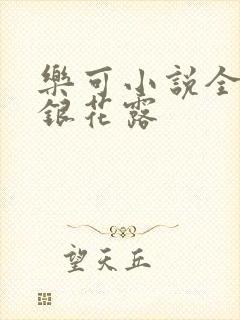 樂可小說全
銀花露
望天丘